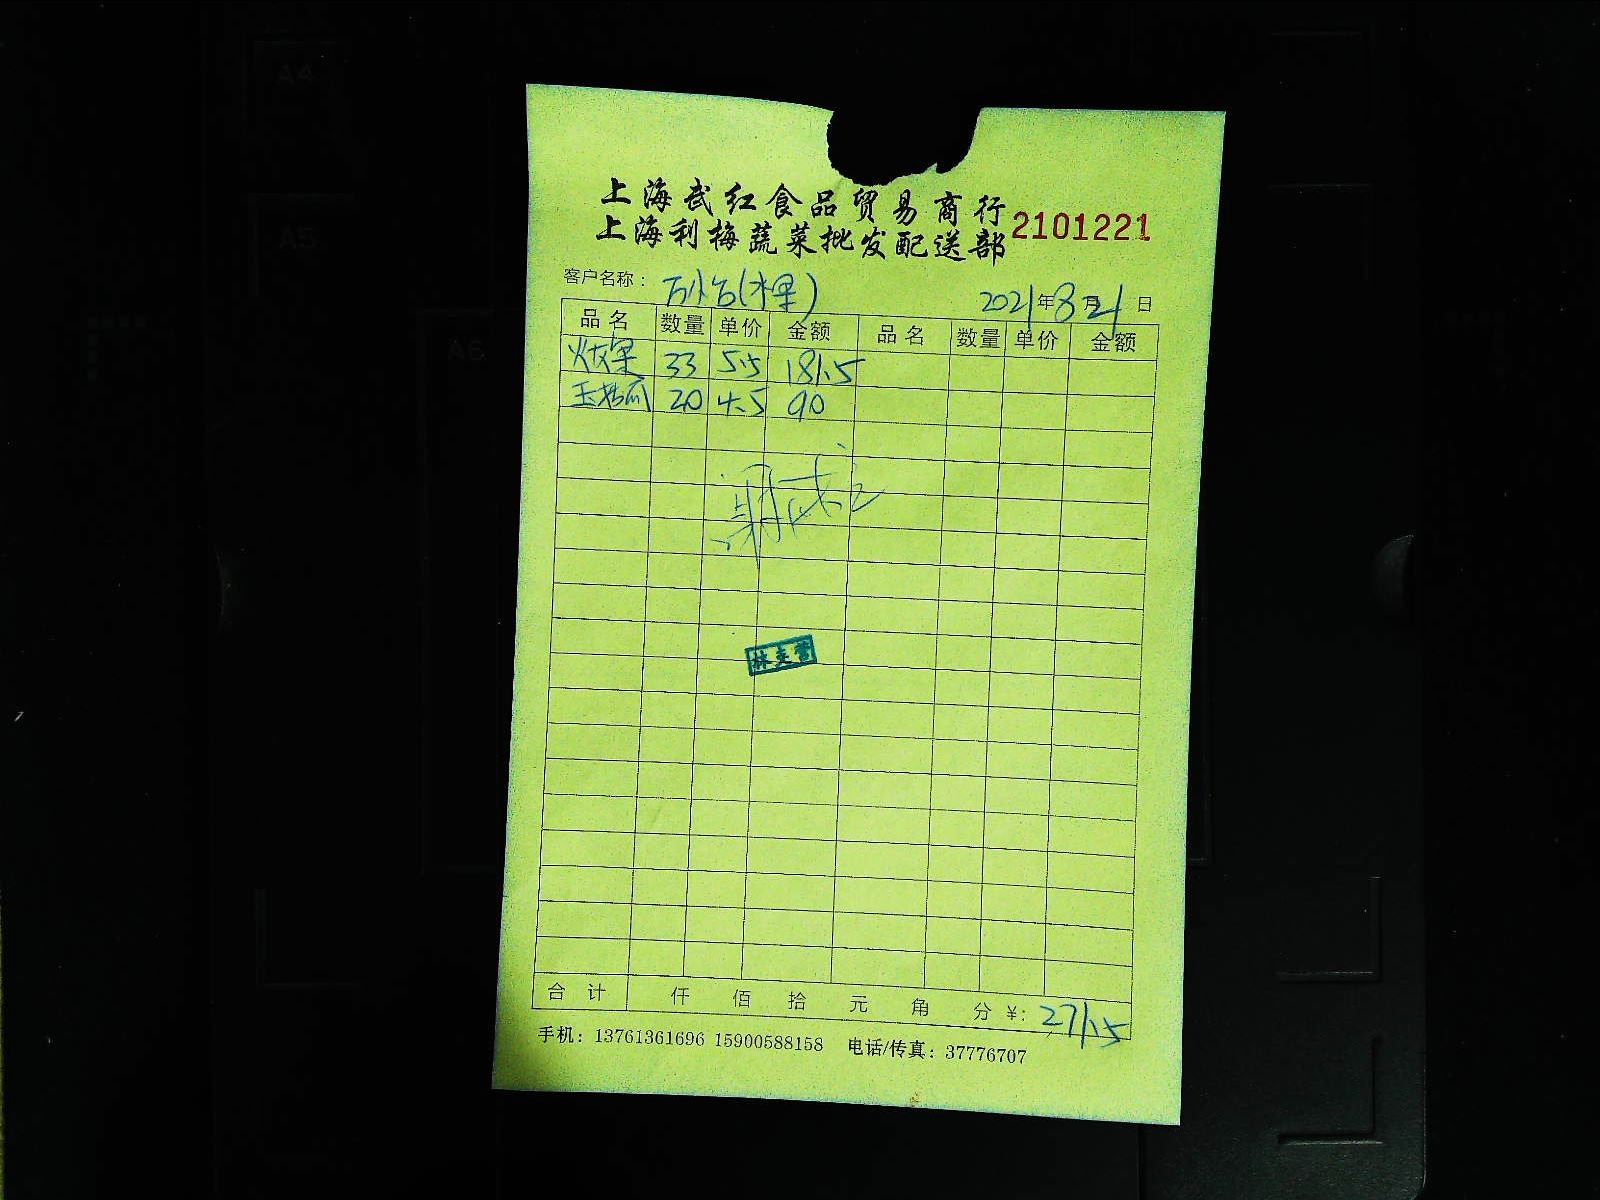 上海武红食品贸易商行
上海利梅蔬菜批发配送部 2101221
客户名称： (水果) 2021年8月21日
品名 数量 单价 金额 品名 数量 单价 金额
33 5.5 181.5
玉菇瓜 20 4.5 90
合计 仟 佰 拾 元 角 分 ¥: 271.5
手机：13761361696 15900588158 电话/传真：37776707
A4
A5
A6